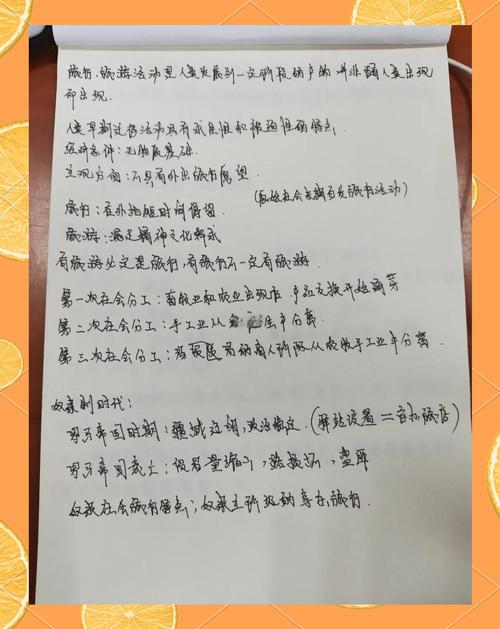 旅行、旅游活动是人类发展到一定阶段的产的 并非随人类出现
而出现.
人类早期迁徙活动具有求生性和被迫性的特点.
经济条件：无物质基础.
主观方面：不具有外出旅行愿望.
(原始社会末期有旅行活动)
旅行：在外地短时间停留.
旅游：满足精神文化需求
有旅游必定是旅行，有旅行不一定有旅游.
第一次社会分工：畜牧业和农业出现后 产品交换开始萌芽
第二次社会分工：手工业从 业中分离.
第三次社会分工： 商人阶级从农牧手工业中分离.
奴隶制时代：
罗马帝国时期：疆域辽阔，政治稳定.(驿站设置 = 官办旅店)
罗马帝国衰亡：贸易量缩小，路损坏，盗匪
奴隶社会旅行特点；奴隶主阶级的享乐旅行.